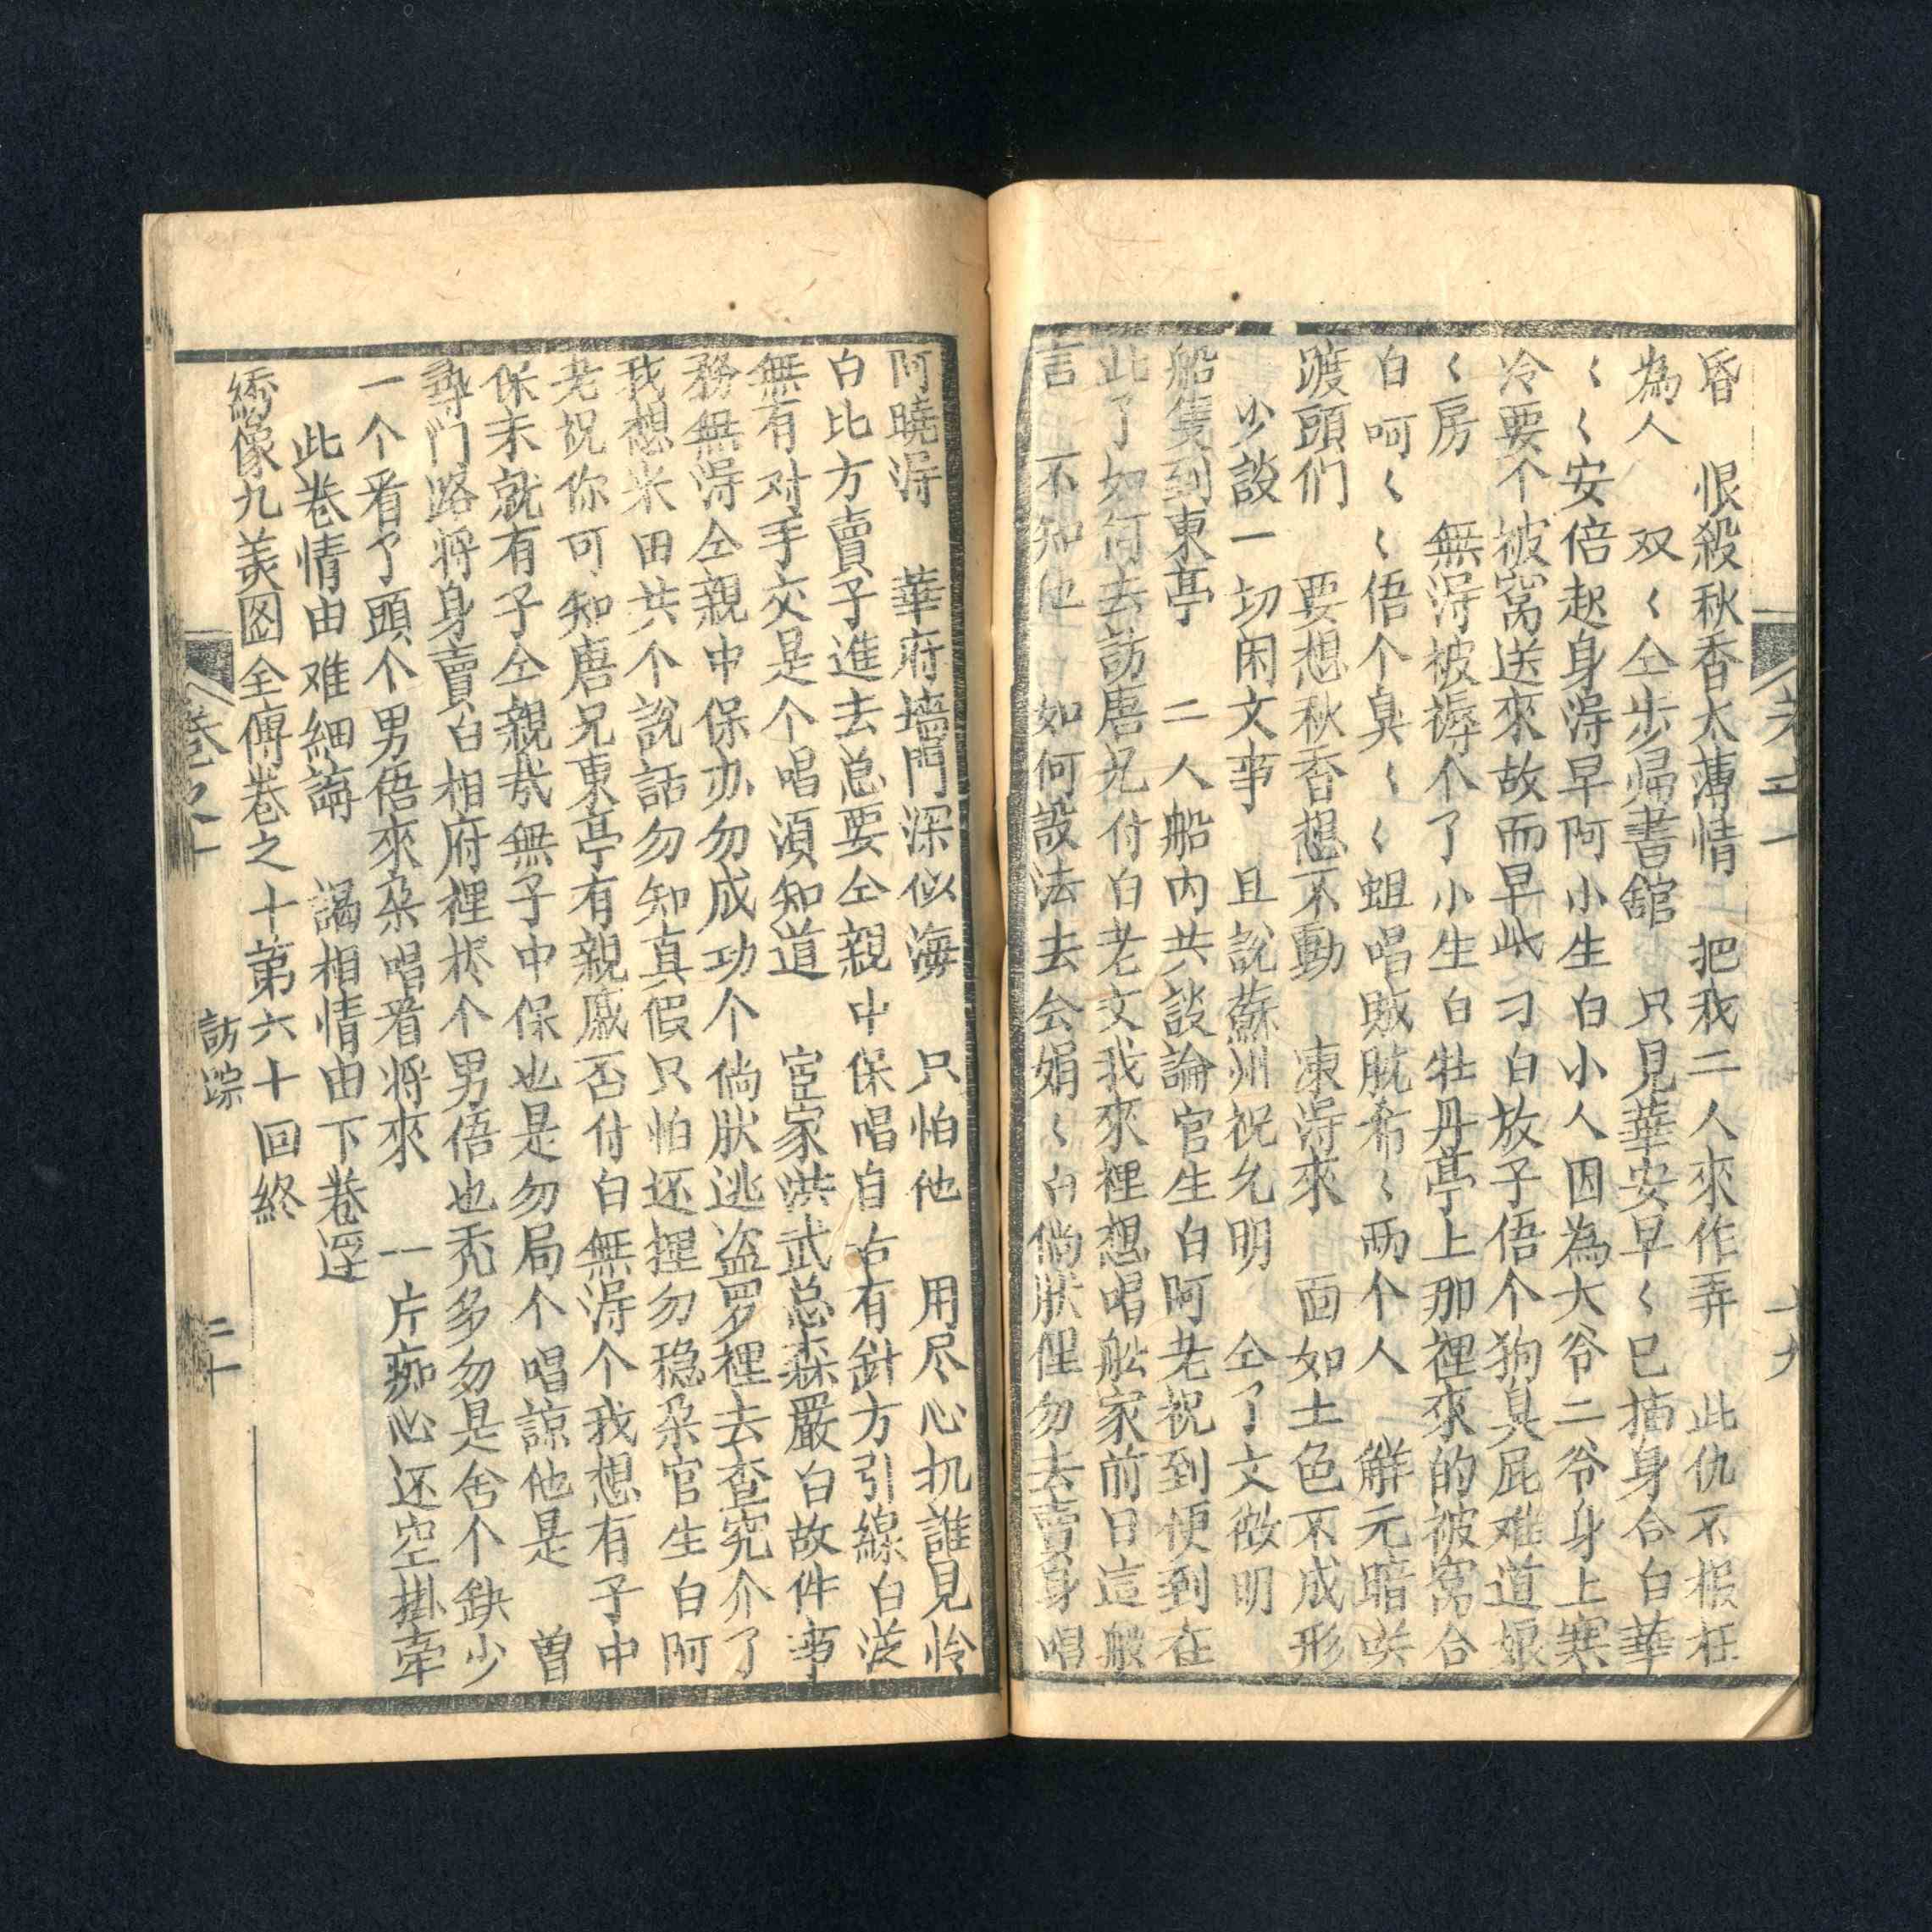 昏　恨殺秋香太薄情　把我二人來作弄　此仇不報枉
為人　双〻仝步歸書館　只見華安早〻已捕身合白華
〻〻安倍起身淂早阿小生白小人因為大爷二爷身上寒
冷要个被窩送來故而早此刁白放子悟个狗臭屁难道
〻房　無淂被褥个了小生白牡丹亭上那裡來的被窩合
白呵〻〻悟个臭〻〻蛆唱
两个人　解元暗笑
渡頭们　要想秋香想不動　凍淂來　面如土色不成形
少談一切闲文事　且說蘇州祝允明　仝了文徵明
船隻到東亭　二人船内共談論官生白阿老祝到便到在
此了如何去訪唐兄付白老文我來裡想唱舩家前日這般
言　不知他　如何設法去会娟〻白倘肰俚勿去賣身唱
卷之十　十九
阿曉淂　華府墻門深似海　只怕他　用尽心机誰見怜
白比方賣子進去总要仝親中保唱自古有針方引線白没
無有对手交是个唱須知道　宦家洪武总森嚴白故件事
務無淂仝親中保办勿成功个倘肰逃盗罗裡去查究介了
我想米田共个說話勿知真假只怕还捏勿稳朶官生白阿
老祝你可知唐兄東亭有親戚否付白無淂个我想有子中
保未就有子仝親哉無子中保也是勿局个唱諒他是　曽
尋門路将身賣白相府裡
个男悟也秃多勿是舍个缺少
一个看了頭个男悟來朶唱看将來　一片痴心还空掛牵
此卷情由难細講　謁相情由下卷逞
綉像九美圖全傳卷之十第六十回終
卷之十　訪踪　二十